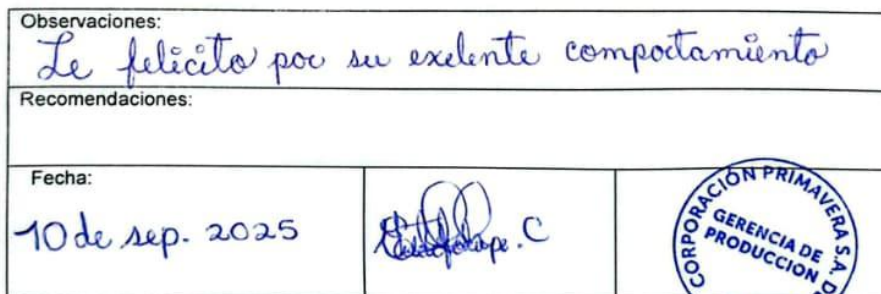 Observaciones:
Le felicito por su exelente comportamiento
Recomendaciones:
Fecha:
10 de sep. 2025
CORPORACIÓN PRIMAVERA S.A. D
GERENCIA DE
PRODUCCION